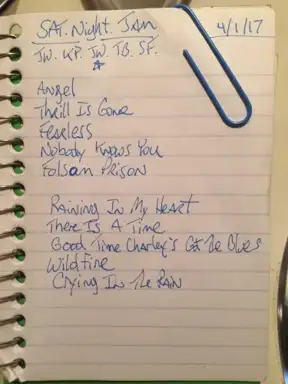 SAT. Night JAM 4/1/17
JW. KP. JW. TB. SF.
Angel
Thrill Is Gone
Fearless
Nobody Knows You
Folsom Prison
Raining In My Heart
There Is A Time
Good Time Charley's Got The Blues
Wildfire
Crying In The Rain